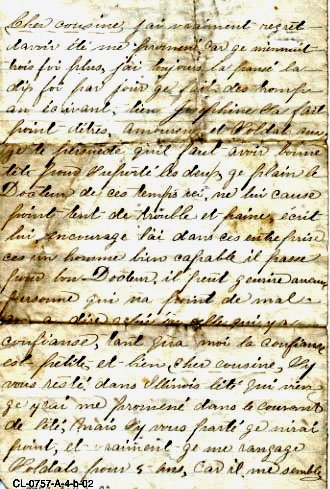 Cher cousine, j'ai vraiment regret
d'avoir été me promené car ge m'ennuit
trois foi plus, j'ai toujours la pansé la
dis foi par jour ge fait des
en écrivant, tien Josephine Na fait
point d'être amoureux et Soldat
ge te qu'il faut avoir bonne
tête pour suporté les deux, ge plain le
Docteur de ces temps ici, ne lui cause
point tent de trouble et paine, écrit
lui, encourage lai dans ces entreprise
ces un homme bien capable il passe
pour bon Docteur, il peut genire aucun
personne qui na point de mal
a dire qui y a
confianse, tant qu'a moi la confianse
est petite, et bien cher cousine, sy
vous resté dans Illinois l'été qui vien
ge yrai me promené dans le courant
de l'été, mais sy vous parté ge nirai
point, et vraiment ge me rangage
Soldats pour 5 ans, car il me semble
CL-0757-A-4-b-02